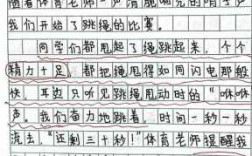 随着体育老师一声清脆响亮的哨子声
我们开始了跳绳的比赛。
同学们都甩起了绳跳起来，个个
精力十足，都把绳甩得如同闪电那般
快，耳边只听见跳绳甩动时的“咻咻
声。我们奋力地跳着，时间一秒一秒
流去，“还剩三十秒！”体育老师提醒